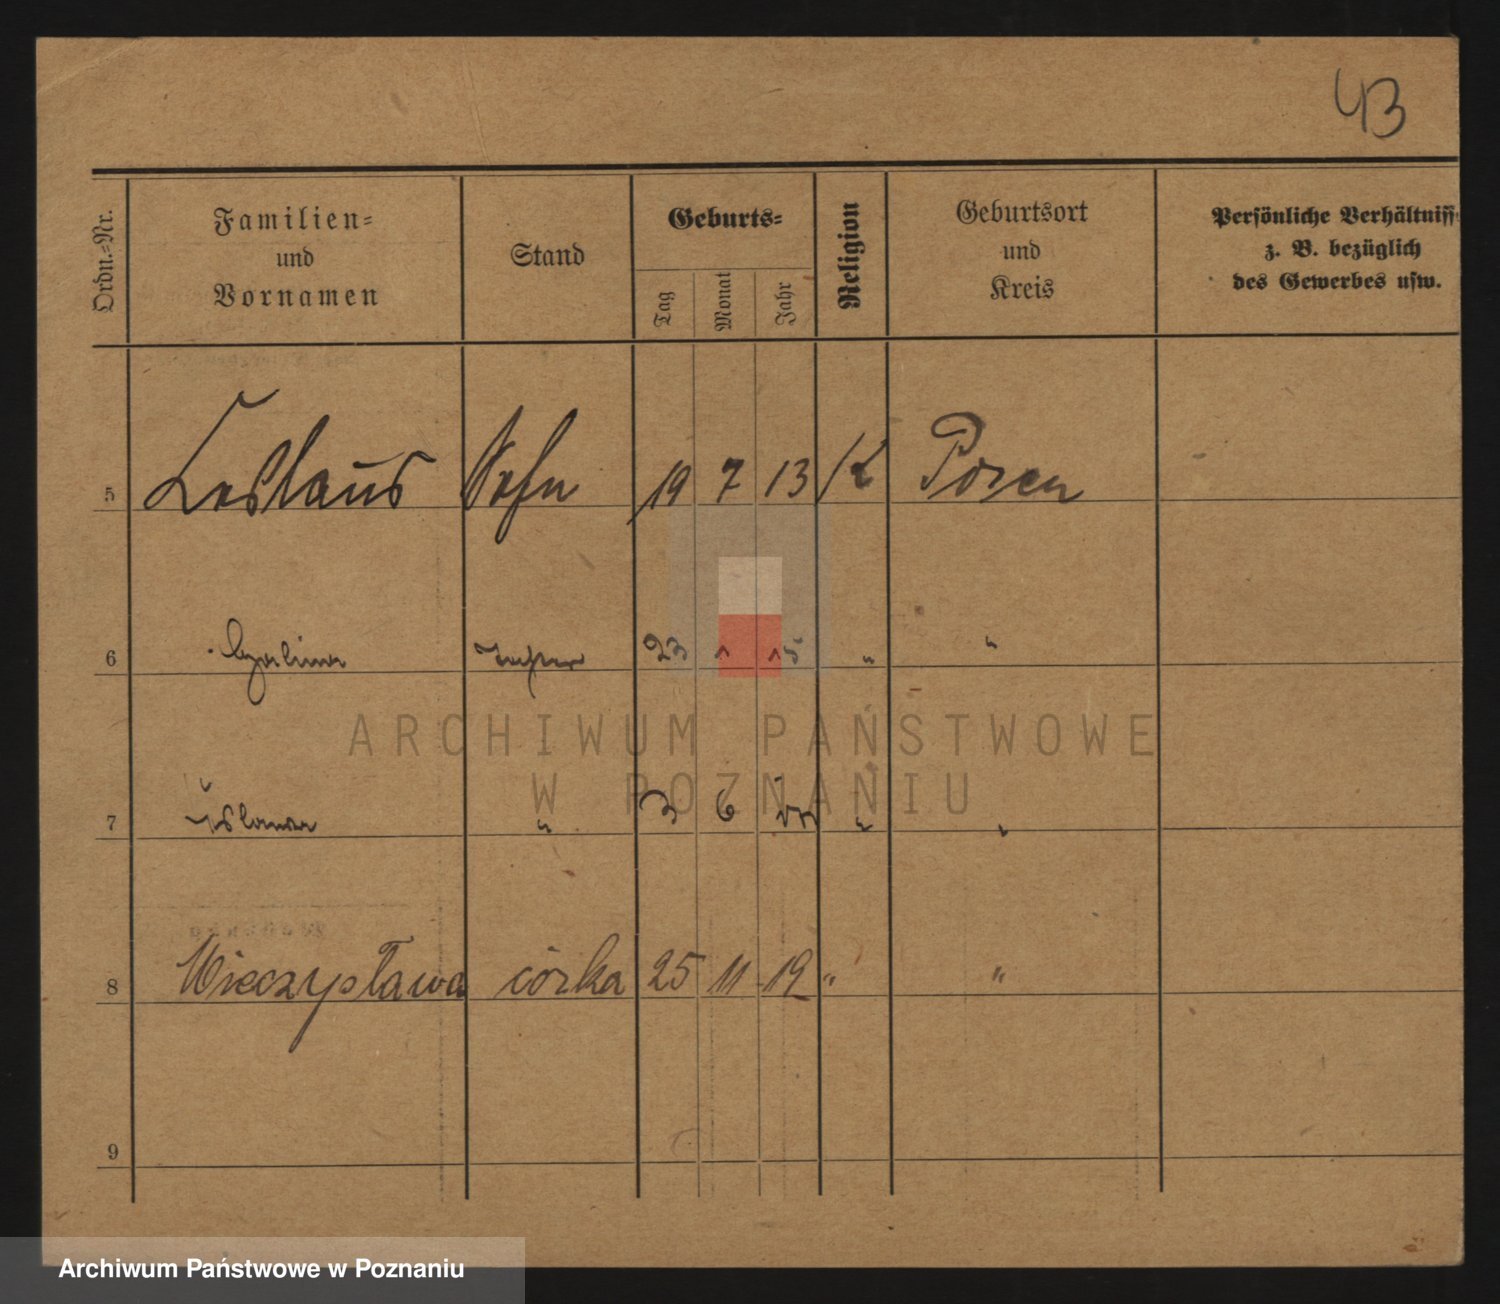 43
Ordn.=Nr.
Familien=
und
Vornamen
Stand
Geburts=
Tag
Monat
Jahr
Religion
Geburtsort
und
Kreis
Persönliche Verhältniss
z. B. bezüglich
des Gewerbes usw.
5 Leslaus Sohn 19 7 13 K Posen
6 Tochter 23 1 15 " "
7 " 3 6 " "
8 Mieczysława córka 25 11 19 " "
9
ARCHIWUM PAŃSTWOWE
W POZNANIU
Archiwum Państwowe w Poznaniu